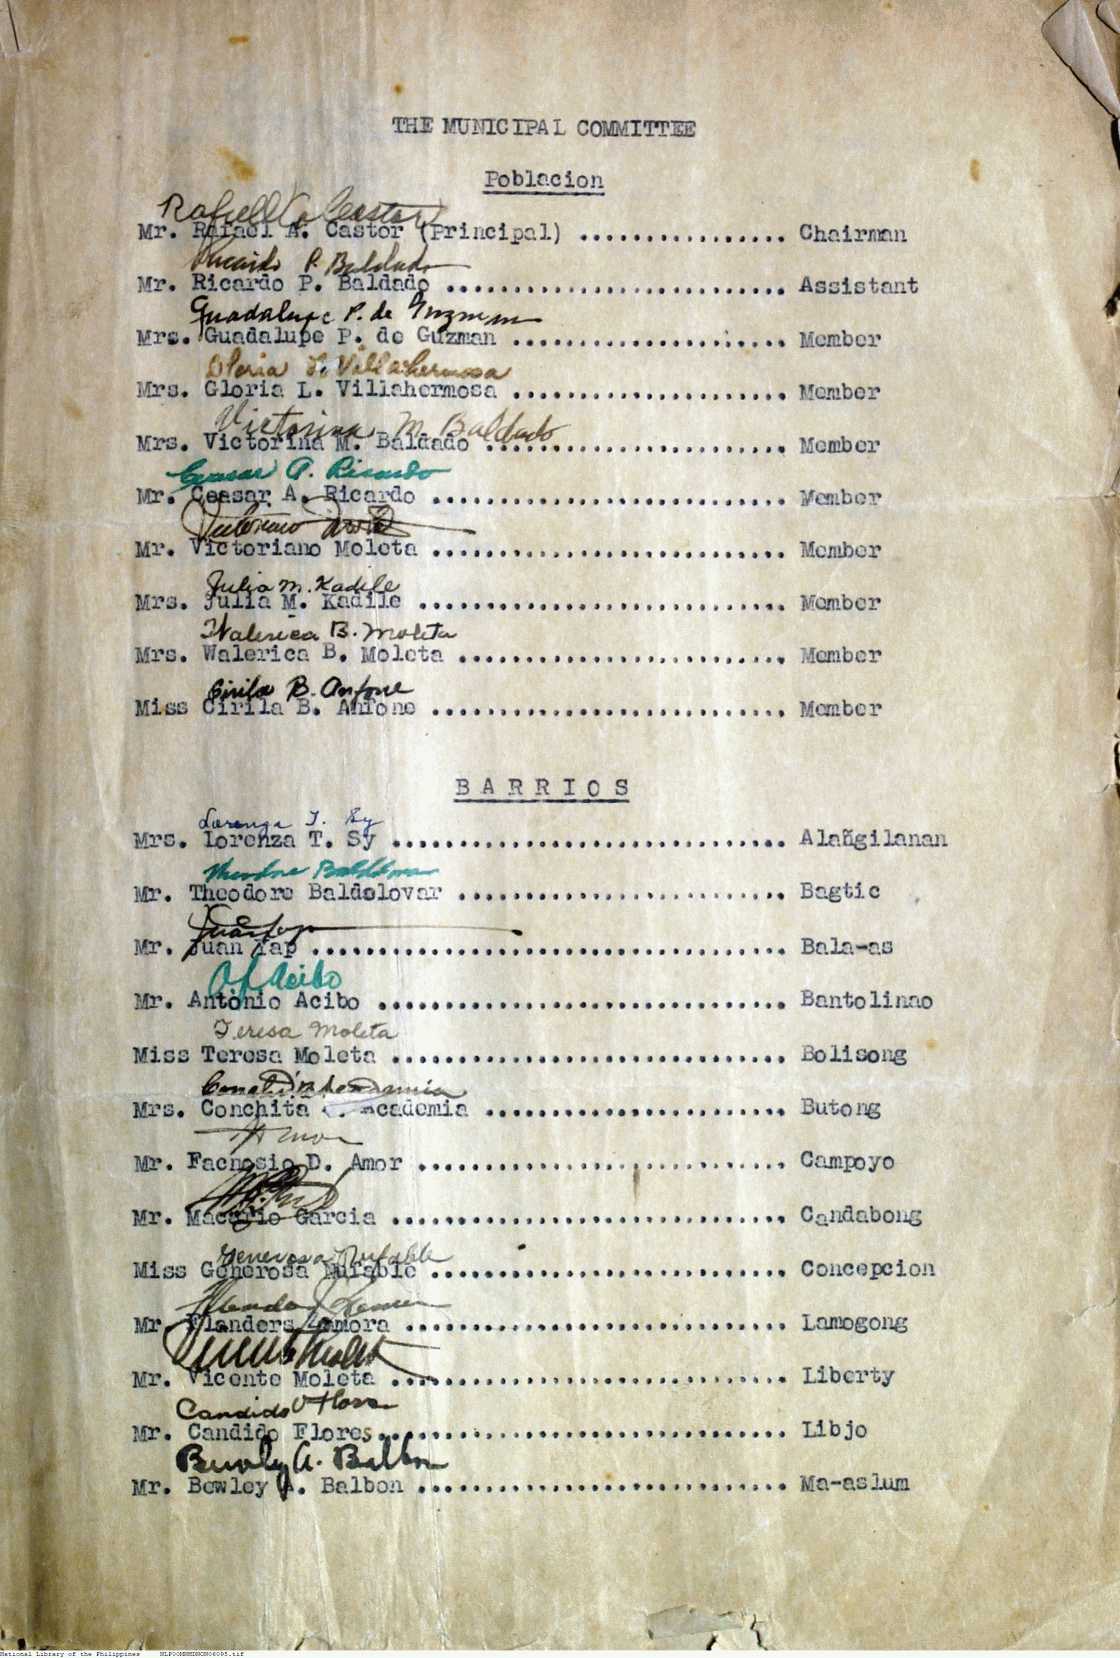 THE MUNICIPAL COMMITTEE
Poblacion
Mr. Rafael A. Castor (Principal) ................ Chairman
Ricardo P. Baldado
Mr. Ricardo P. Baldado .......................... Assistant
Guadalupe P. de Guzman
Mrs. Guadalupe P. de Guzman ..................... Member
Gloria L. Villahermosa
Mrs. Gloria L. Villahermosa ..................... Member
Victorina M. Baldado
Mrs. Victorina M. Baldado ....................... Member
Ceasar A. Ricardo
Mr. Ceasar A. Ricardo ........................... Member
Mr. Victoriano Moleta ........................... Member
Julia M. Kadile
Mrs. Julia M. Kadile ............................ Member
Walerica B. Moleta
Mrs. Walerica B. Moleta ......................... Member
Cirila B. Anfone
Miss Cirila B. Anfone ........................... Member
BARRIOS
Lorenza T. Sy
Mrs. Lorenza T. Sy .............................. Alañgilanan
Mr. Theodore Baldelovar ......................... Bagtic
Mr. Juan Yap .................................... Bala-as
Acibo
Mr. Antonio Acibo ............................... Bantolinao
Teresa Moleta
Miss Teresa Moleta .............................. Bolisong
Mrs. Conchita Academia ....................... Butong
Amor
Mr. Facnosio D. Amor ............................ Campoyo
Mr. Macario Garcia .............................. Candabong
Generosa Nufable
Miss Generosa Nufable ........................... Concepcion
Mr. Flanders Zamora ............................. Lamogong
Mr. Vicente Moleta .............................. Liberty
Candido Flores
Mr. Candido Flores............................... Libjo
Bewley A. Balbon
Mr. Bewley A. Balbon ............................ Ma-aslum
National Library of the Philippines